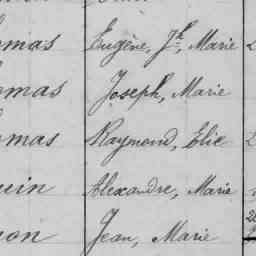 omas Eugène, Jh, Marie 2
omas Joseph, Marie
omas Raymond, Elie 2
uin Alexandre, Marie
non Jean, Marie